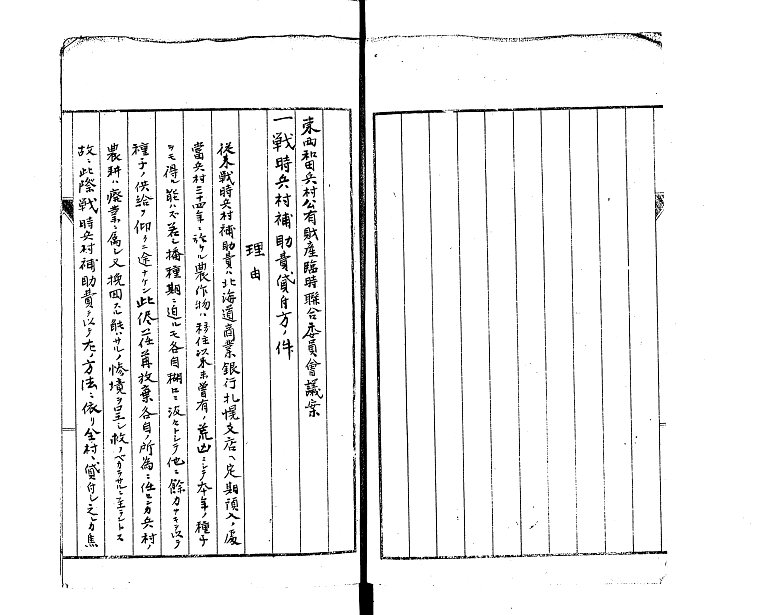 東西和田兵村公有財産臨時聯合委員會議案
一戦時兵村補助費貸付方ノ件
理由
従来戦時兵村補助費ハ北海道商業銀行札幌支店ヘ定期預入ノ處
當兵村三十四年ニ於ケル農作物ハ移住以来未曾有ノ荒凶ニシテ本年ノ種子
タモ得ル能ハズ若シ播種期ニ迫ルモ各自糊口ニ汲々トシテ他ニ餘力ナキヲ以テ
種子ノ供給ヲ仰クニ途ナケン此侭一任放棄各自ノ所為ニ任センカ兵村ノ
農耕ハ廃業ニ属シ又挽回スル能ハサルノ惨境ヲ呈シ救フベカラサルニ至ラントス
故ニ此際戦時兵村補助費ヲ以テ左ノ方法ニ依リ全村ヘ貸付シ之レカ焦